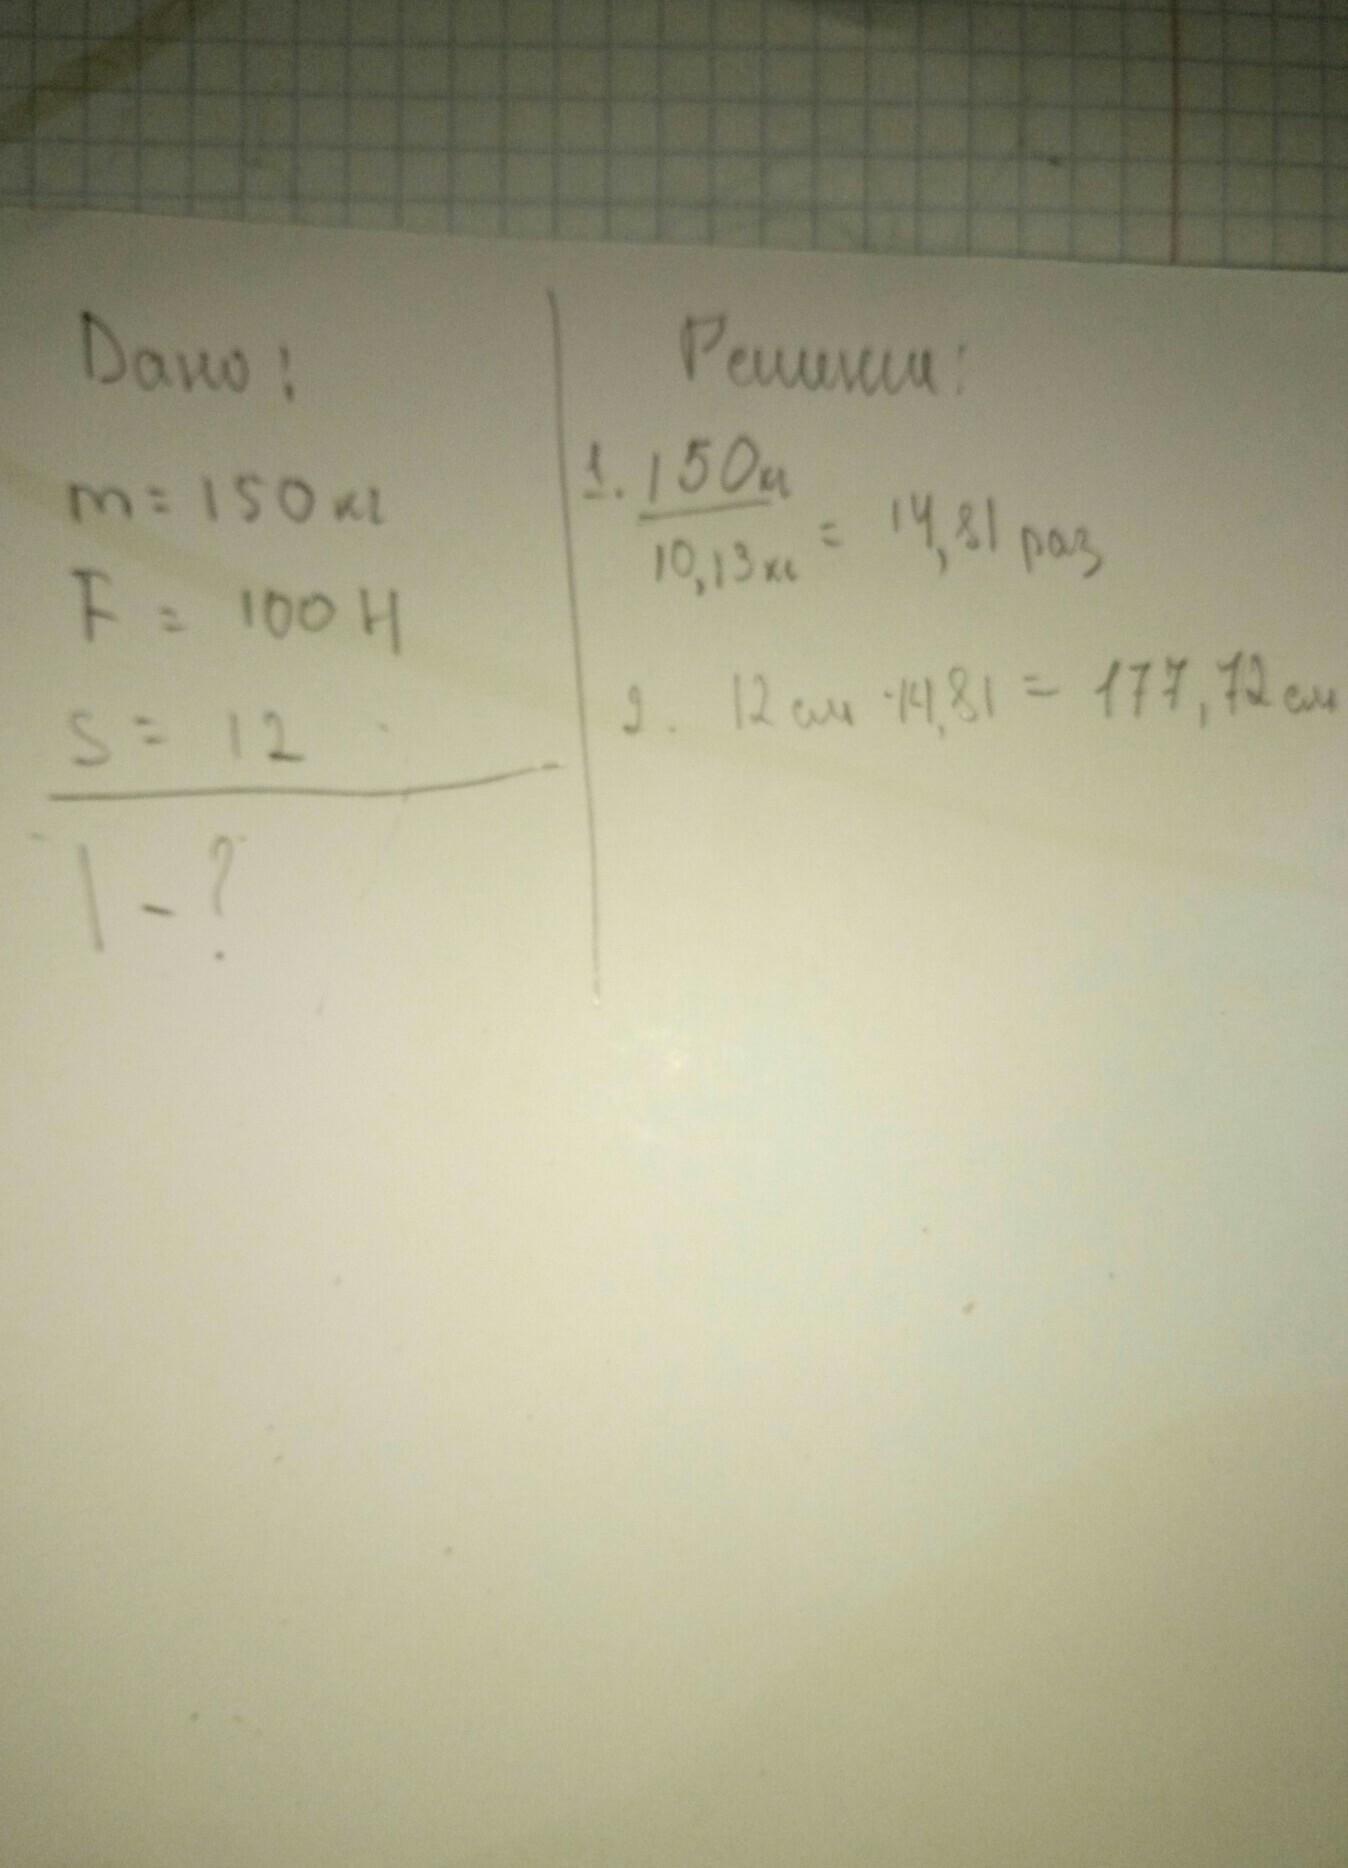 Дано:
m = 150 кг
F = 100 Н
S = 12
l - ?
Решение:
1. 150кг
10,13кг = 14,81 раз
2. 12 см · 14,81 = 177,72 см